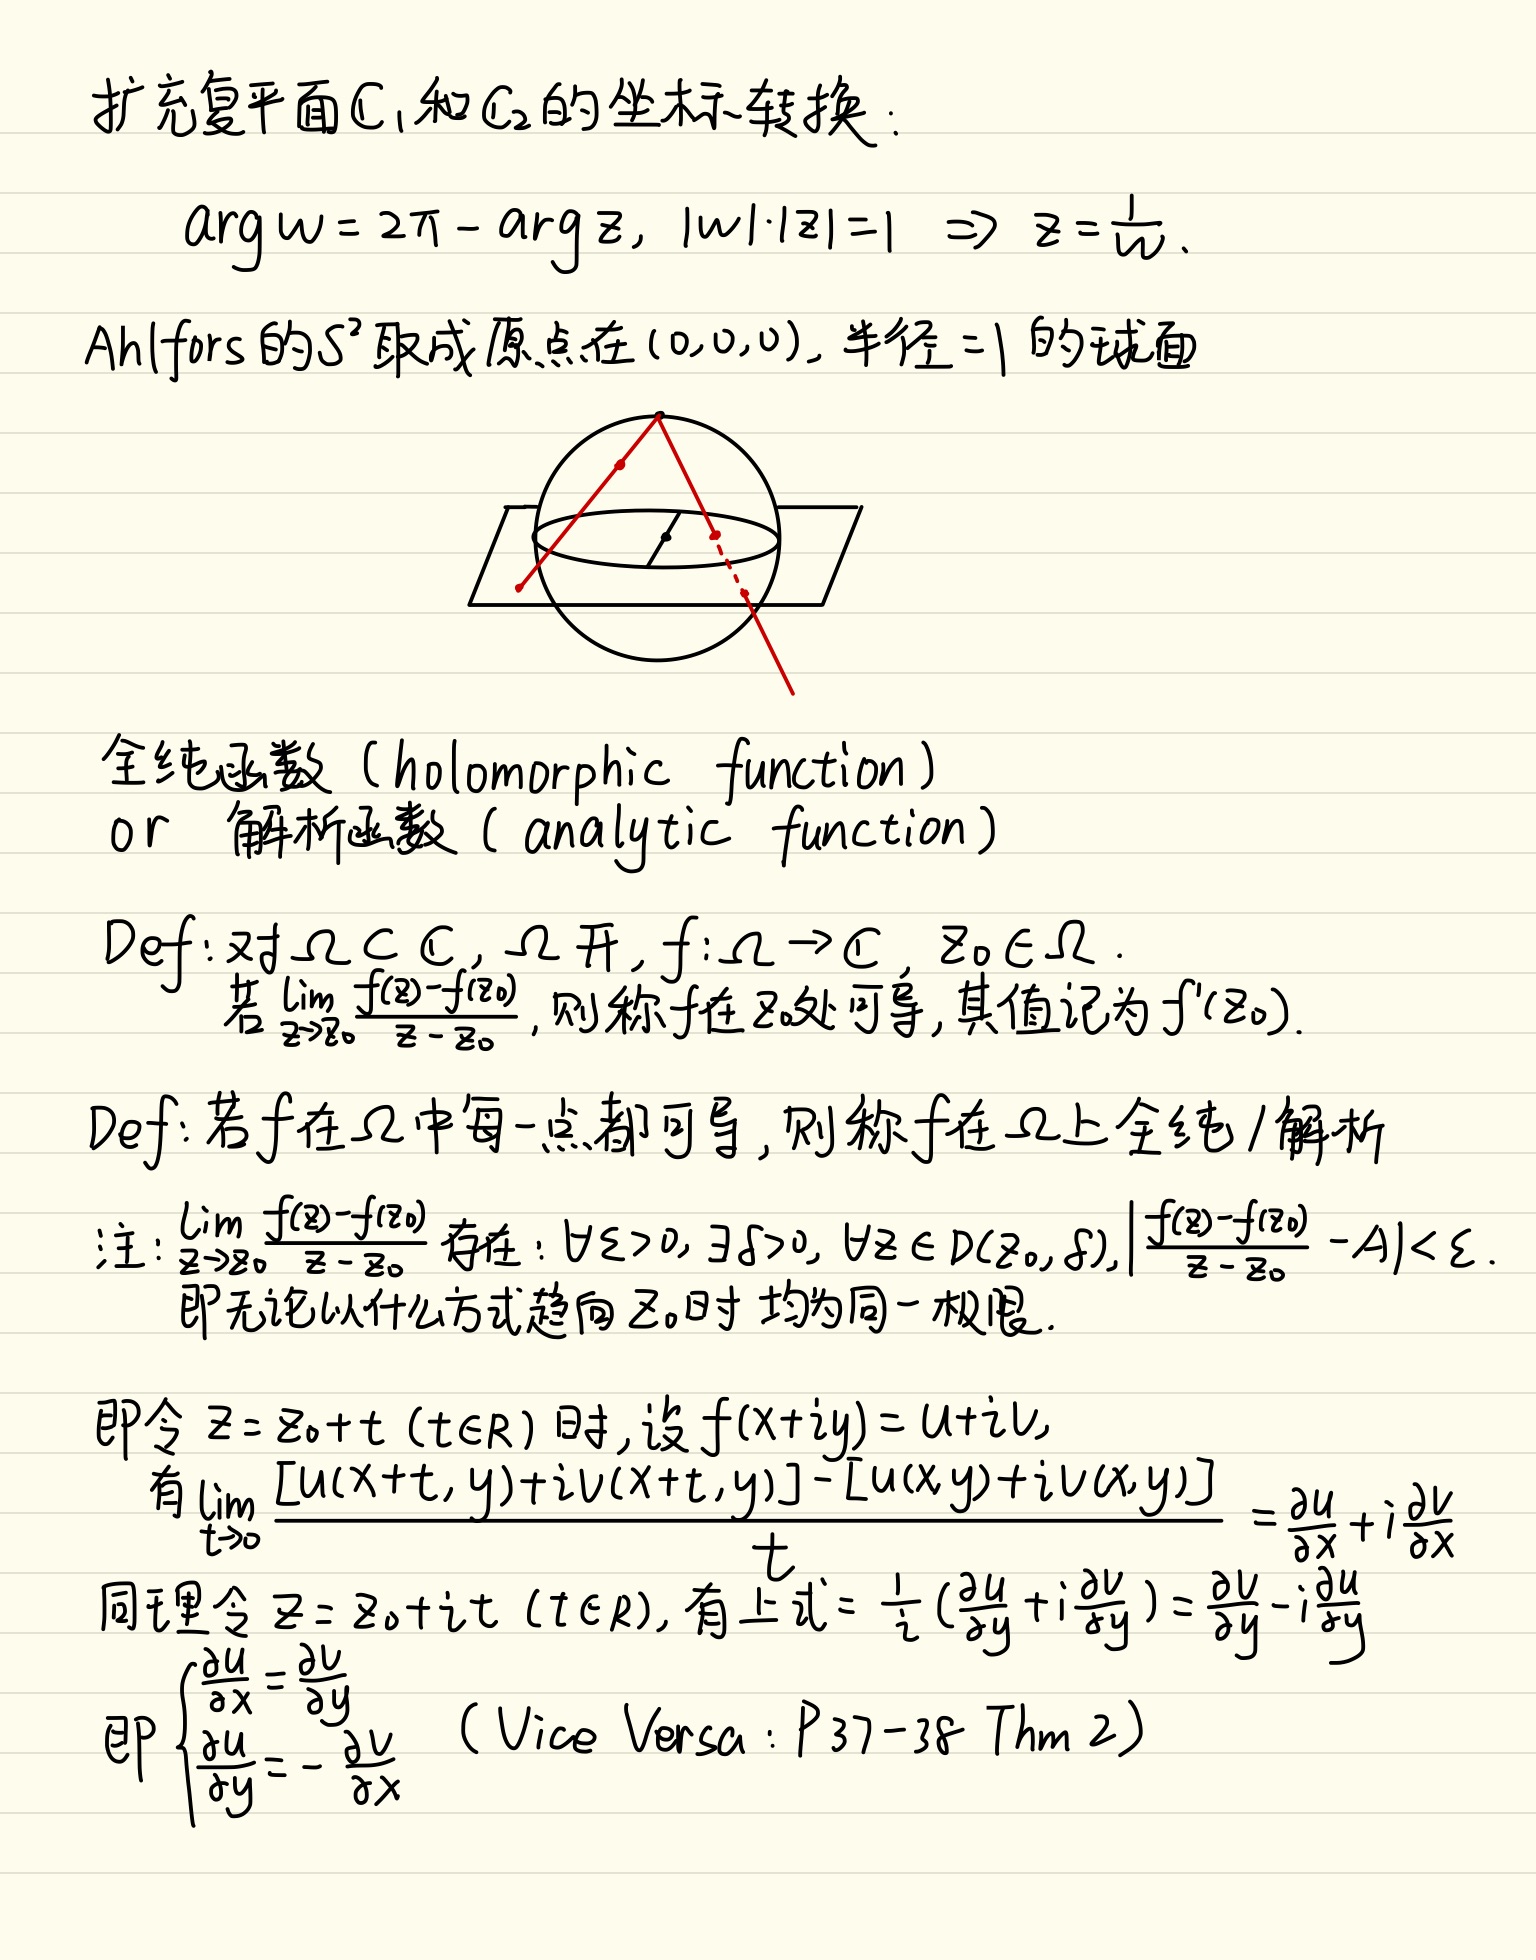 扩充复平面ℂ₁和ℂ₂的坐标转换:
arg w = 2π - arg z, |w|·|z|=1 ⇒ z = 1/w.
Ahlfors的S²取成原点在(0,0,0), 半径=1的球面
全纯函数 (holomorphic function)
or 解析函数 (analytic function)
Def: 对Ω⊂ℂ, Ω开, f:Ω→ℂ, z₀∈Ω.
若 lim_{z→z₀} (f(z)-f(z₀))/(z-z₀), 则称f在z₀处可导, 其值记为f'(z₀).
Def: 若f在Ω中每一点都可导, 则称f在Ω上全纯/解析
注: lim_{z→z₀} (f(z)-f(z₀))/(z-z₀) 存在: ∀ε>0, ∃δ>0, ∀z∈D(z₀,δ), |(f(z)-f(z₀))/(z-z₀) - A|<ε.
即无论以什么方式趋向z₀时均为同一极限.
即令 z=z₀+t (t∈R) 时, 设f(x+iy)=u+iv,
有 lim_{t→0} ([u(x+t,y)+iv(x+t,y)]-[u(x,y)+iv(x,y)])/t = ∂u/∂x + i ∂v/∂x
同理令 z=z₀+it (t∈R), 有上式= 1/i (∂u/∂y + i ∂v/∂y) = ∂v/∂y - i ∂u/∂y
即 { ∂u/∂x = ∂v/∂y
∂u/∂y = - ∂v/∂x (Vice Versa: P37-38 Thm 2)